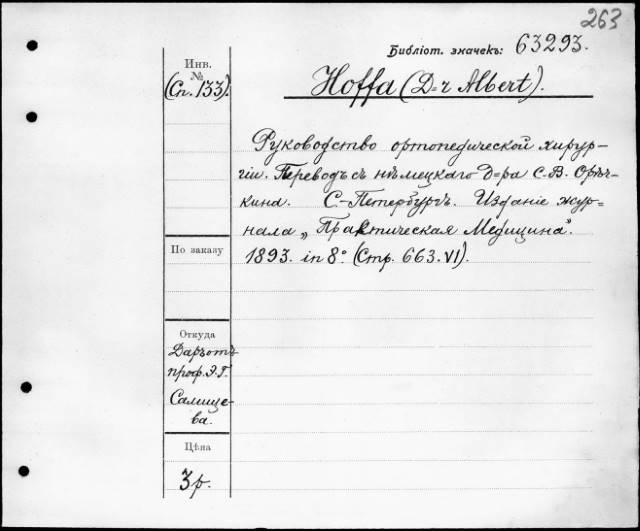 263
Библіот. значекъ: 63293.
Инв.
№
(Сп. 133).
Hoffa (D=r Albert).
Руководство ортопедической хирур-
гіи. Переводъ съ нѣмецкаго Д=ра С. В. Орѣч-
кина. С.-Петербургъ. Изданіе жур-
нала „Практическая Медицина".
1893. in 8° (Стр. 663. VI).
По заказу
Откуда
Даръ отъ
проф. Э. Г.
Салище-
ва.
Цѣна
3 р.